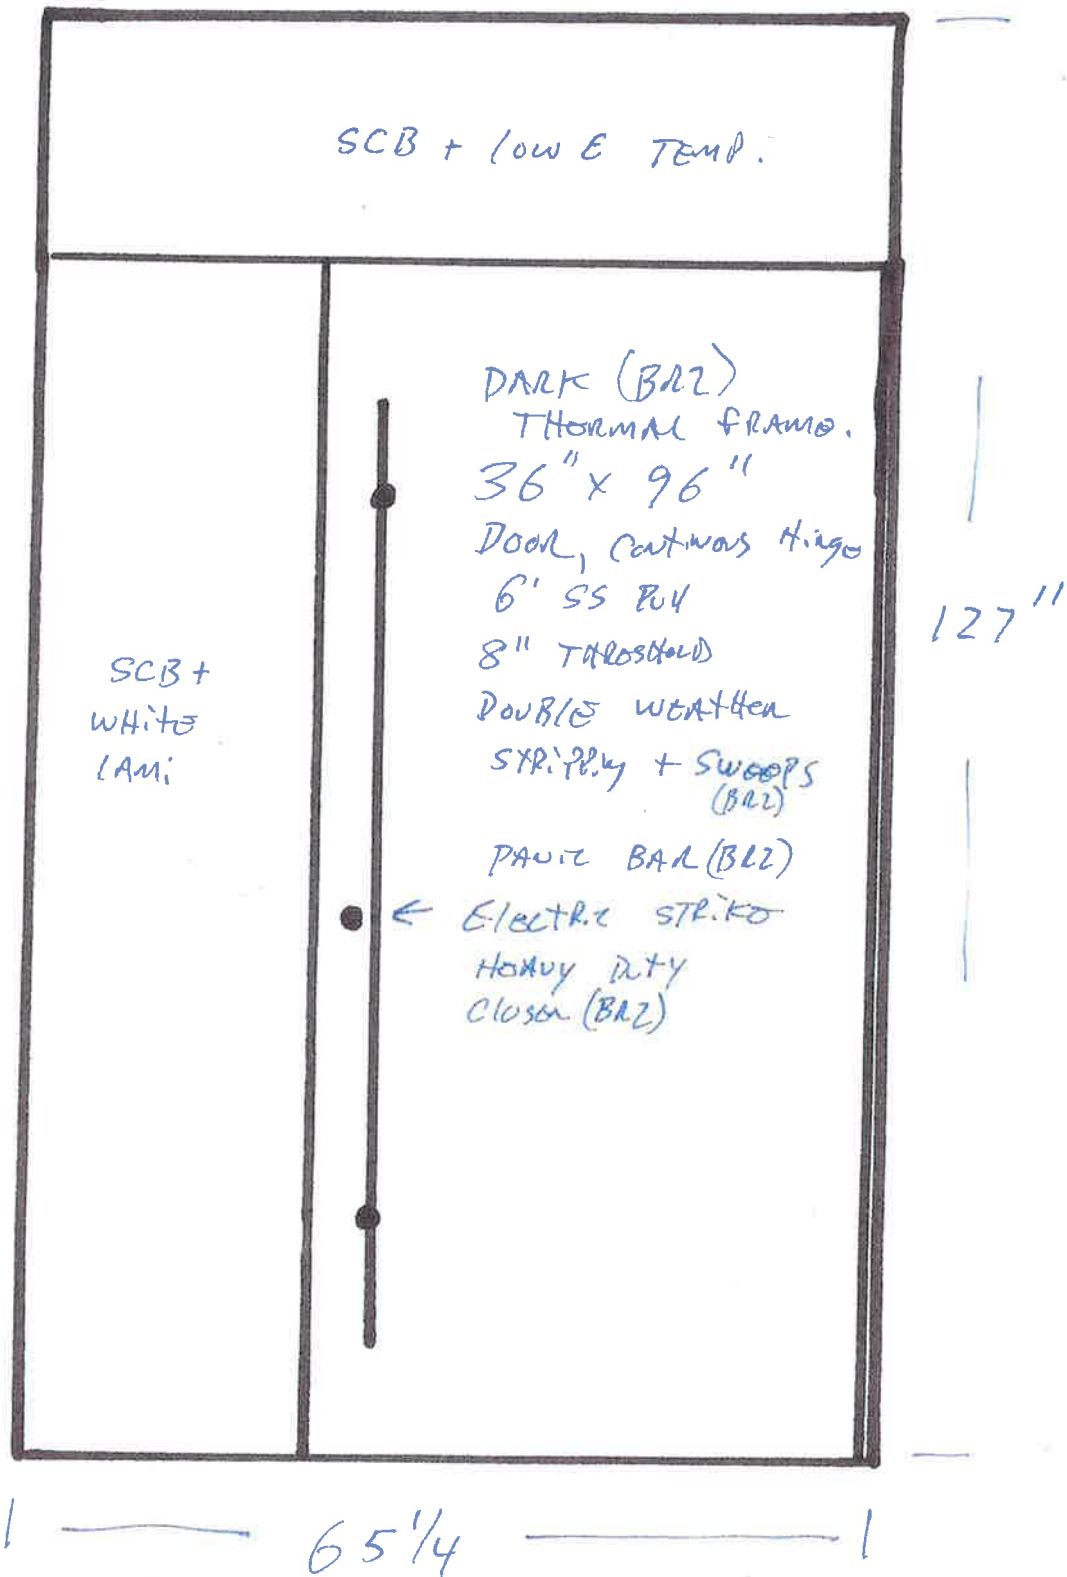 SCB + low E TEMP.
DARK (BRZ)
THERMAL FRAME.
36" x 96"
DOOR, Continous Hinge
6' SS Pull
8" THRESHOLD
DOUBLE WEATHER
STRIPPING + SWEEPS
(BRZ)
PANIC BAR (BRZ)
← ElectRic STRIKE
HEAVY Duty
Closer (BRZ)
SCB +
WHITE
LAMi
127"
65 1/4